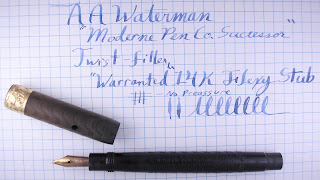 AA Waterman
"Moderne Pen Co. Successor"
Twist filler
"Warranted 14K Flexy Stub
No Preassure